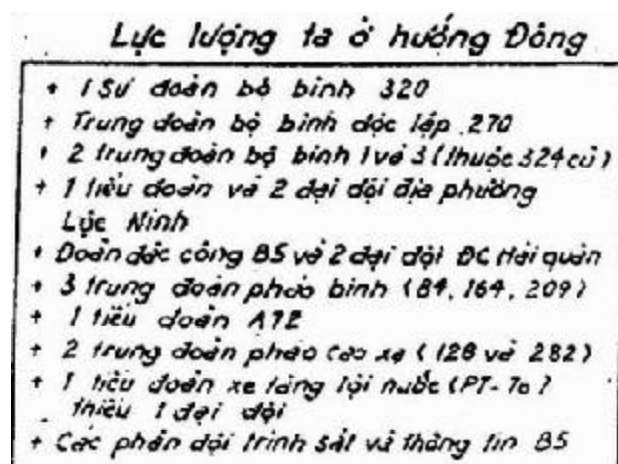 Lực lượng ta ở hướng Đông
+ 1 Sư đoàn bộ binh 320
+ Trung đoàn bộ binh độc lập 270
+ 2 trung đoàn bộ binh 1 và 3 (thuộc 324 cũ)
+ 1 tiểu đoàn và 2 đại đội địa phường
Lực Ninh
+ Đoàn đặc công B5 và 2 đại đội ĐC Hải quân
+ 3 trung đoàn pháo binh (84, 164, 209)
+ 1 tiểu đoàn A72
+ 2 trung đoàn pháo cao xạ (128 và 282)
+ 1 tiểu đoàn xe tăng lội nước (PT-76)
thiếu 1 đại đội
+ Các phân đội trinh sát và thông tin B5